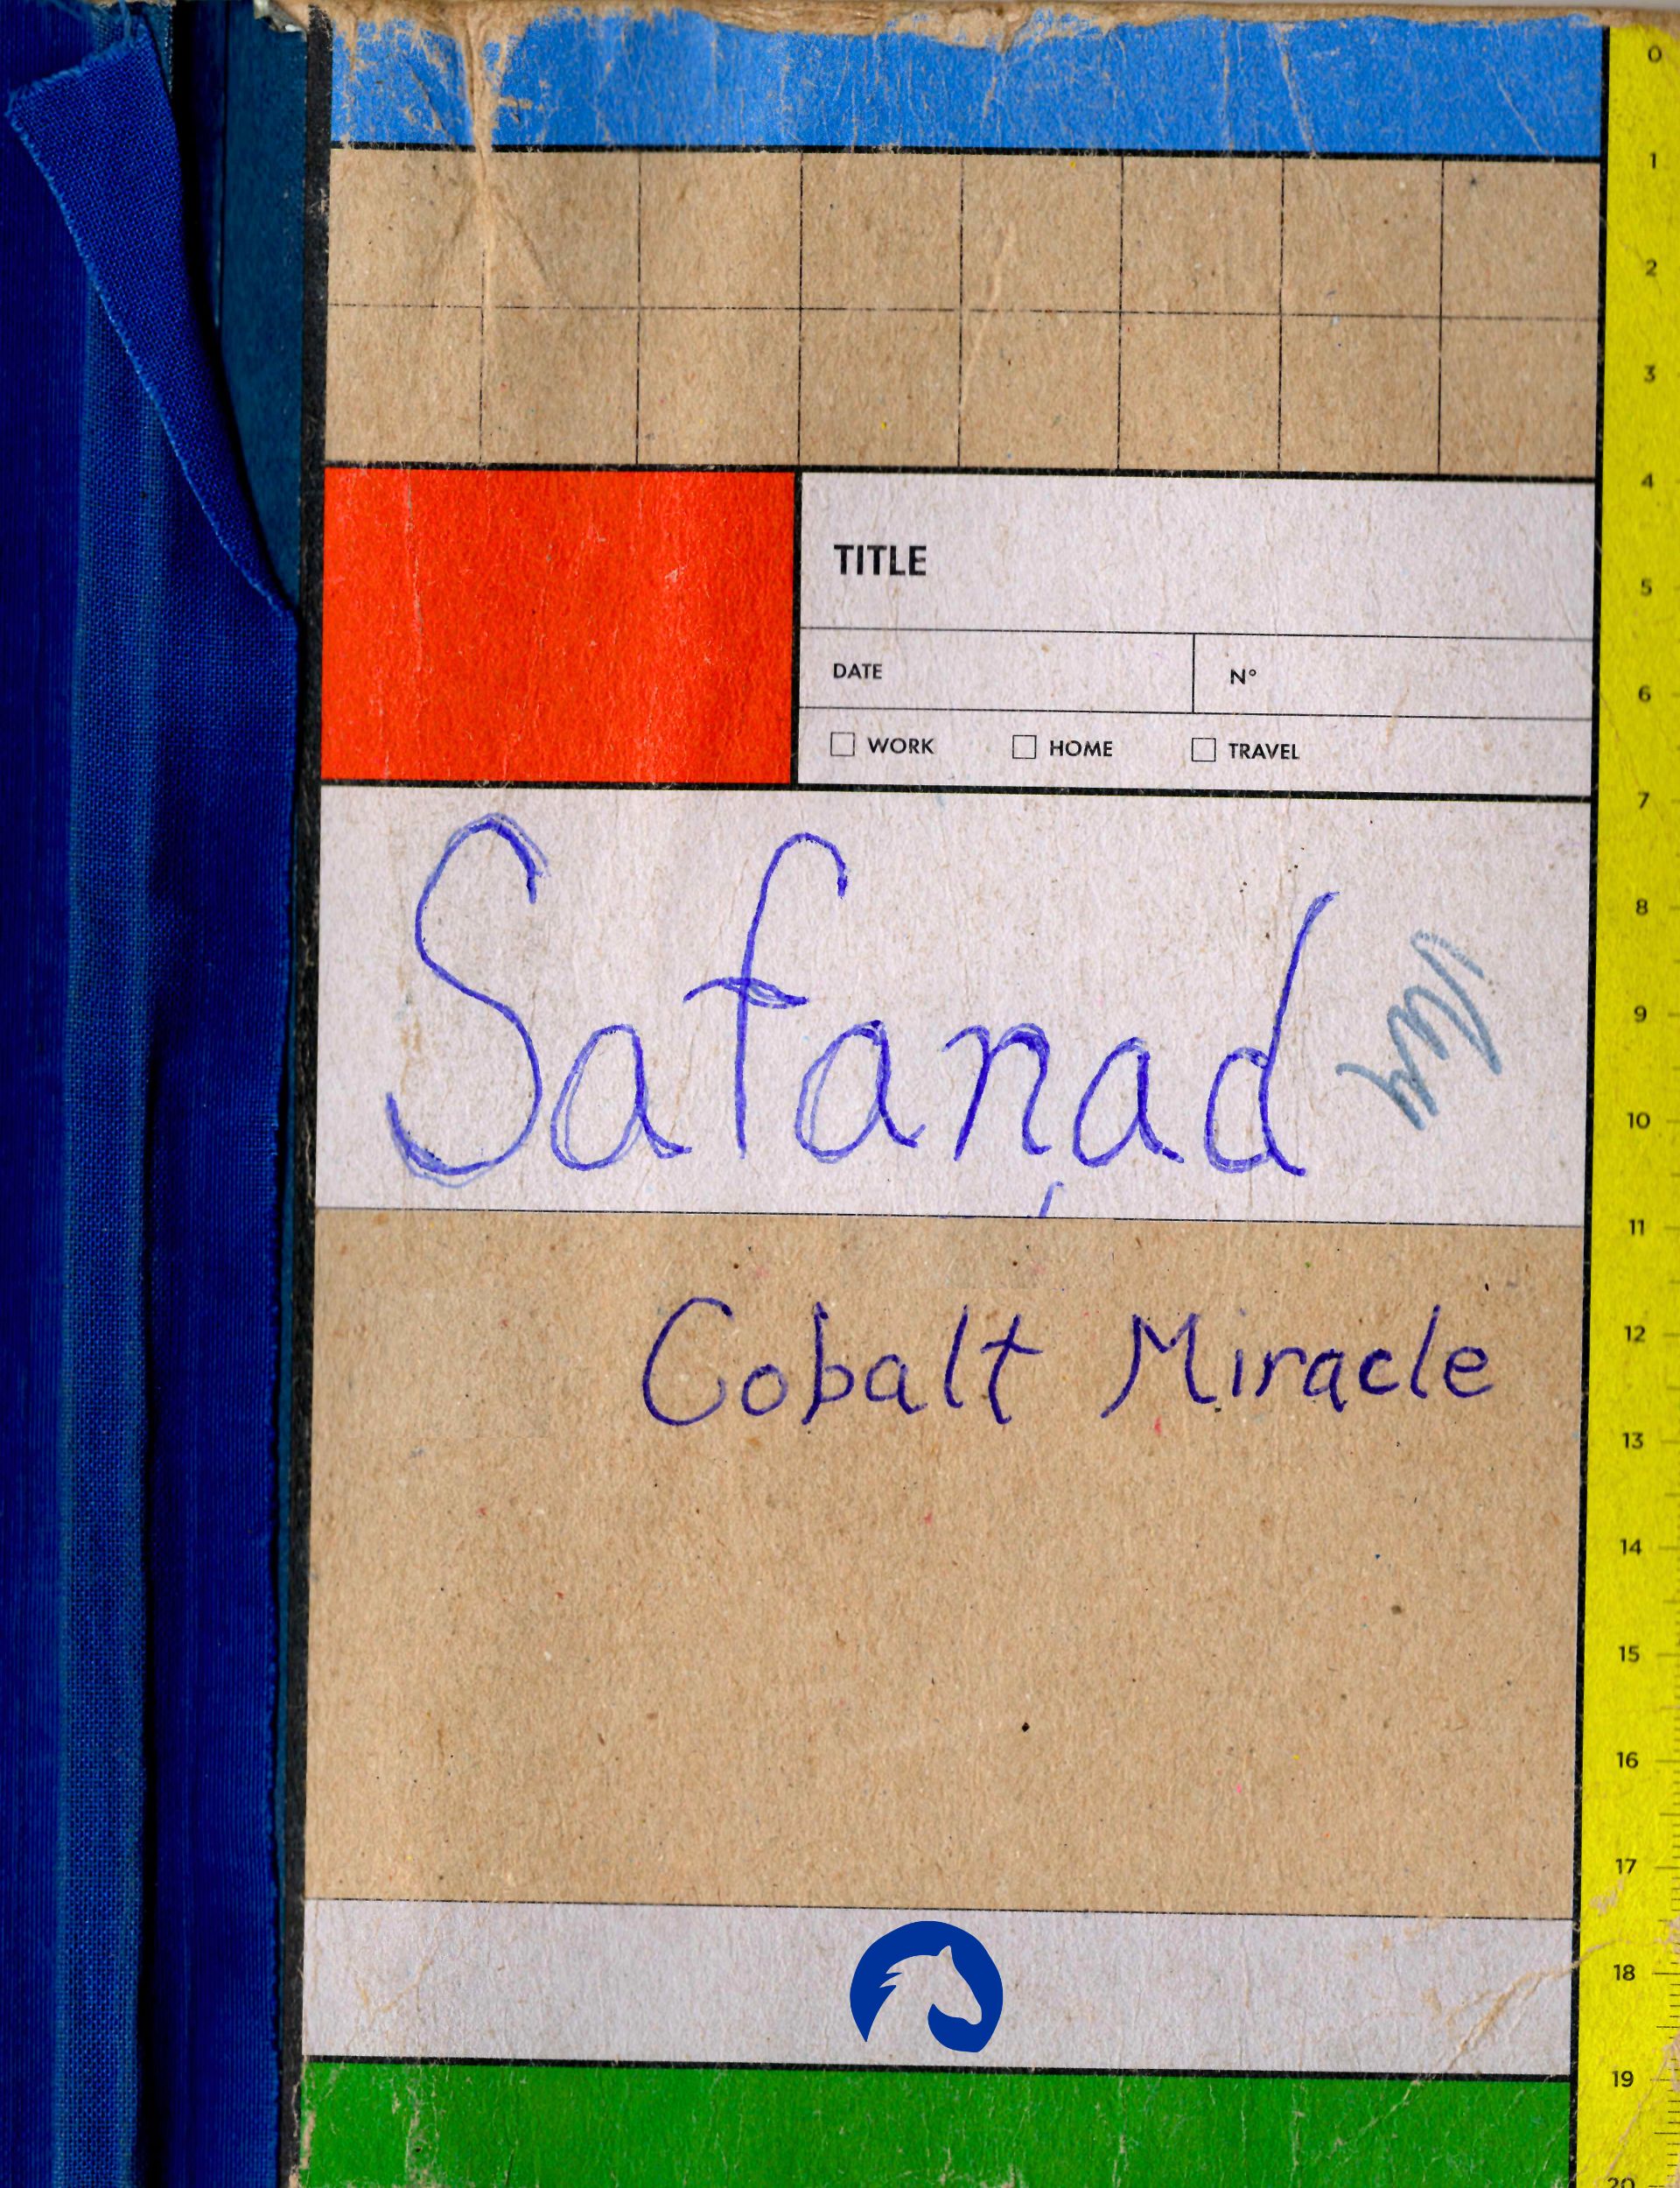 TITLE
DATE
N°
WORK HOME TRAVEL
Safanad
Cobalt Miracle
0
1
2
3
4
5
6
7
8
9
10
11
12
13
14
15
16
17
18
19
20